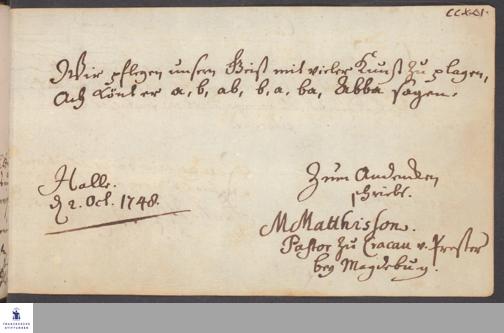 CCXXI.
Wir pflegen unsern Geist mit vieler Kunst zu plagen,
Ach könt er a, b, ab, b, a, ba, Abba sagen.
Halle.
d 2. Oct. 1748.
Zum Andencken
schriebs.
M Matthisson.
Pastor zu Cracau u. Prester
bey Magdeburg.
FRANCKESCHE
STIFTUNGEN